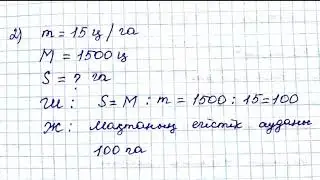 2) m = 15 ц / га
M = 1500 ц
S = ? га
Ш: S = M : m = 1500 : 15 = 100
Ж: Мақтаның егістік ауданы
100 га